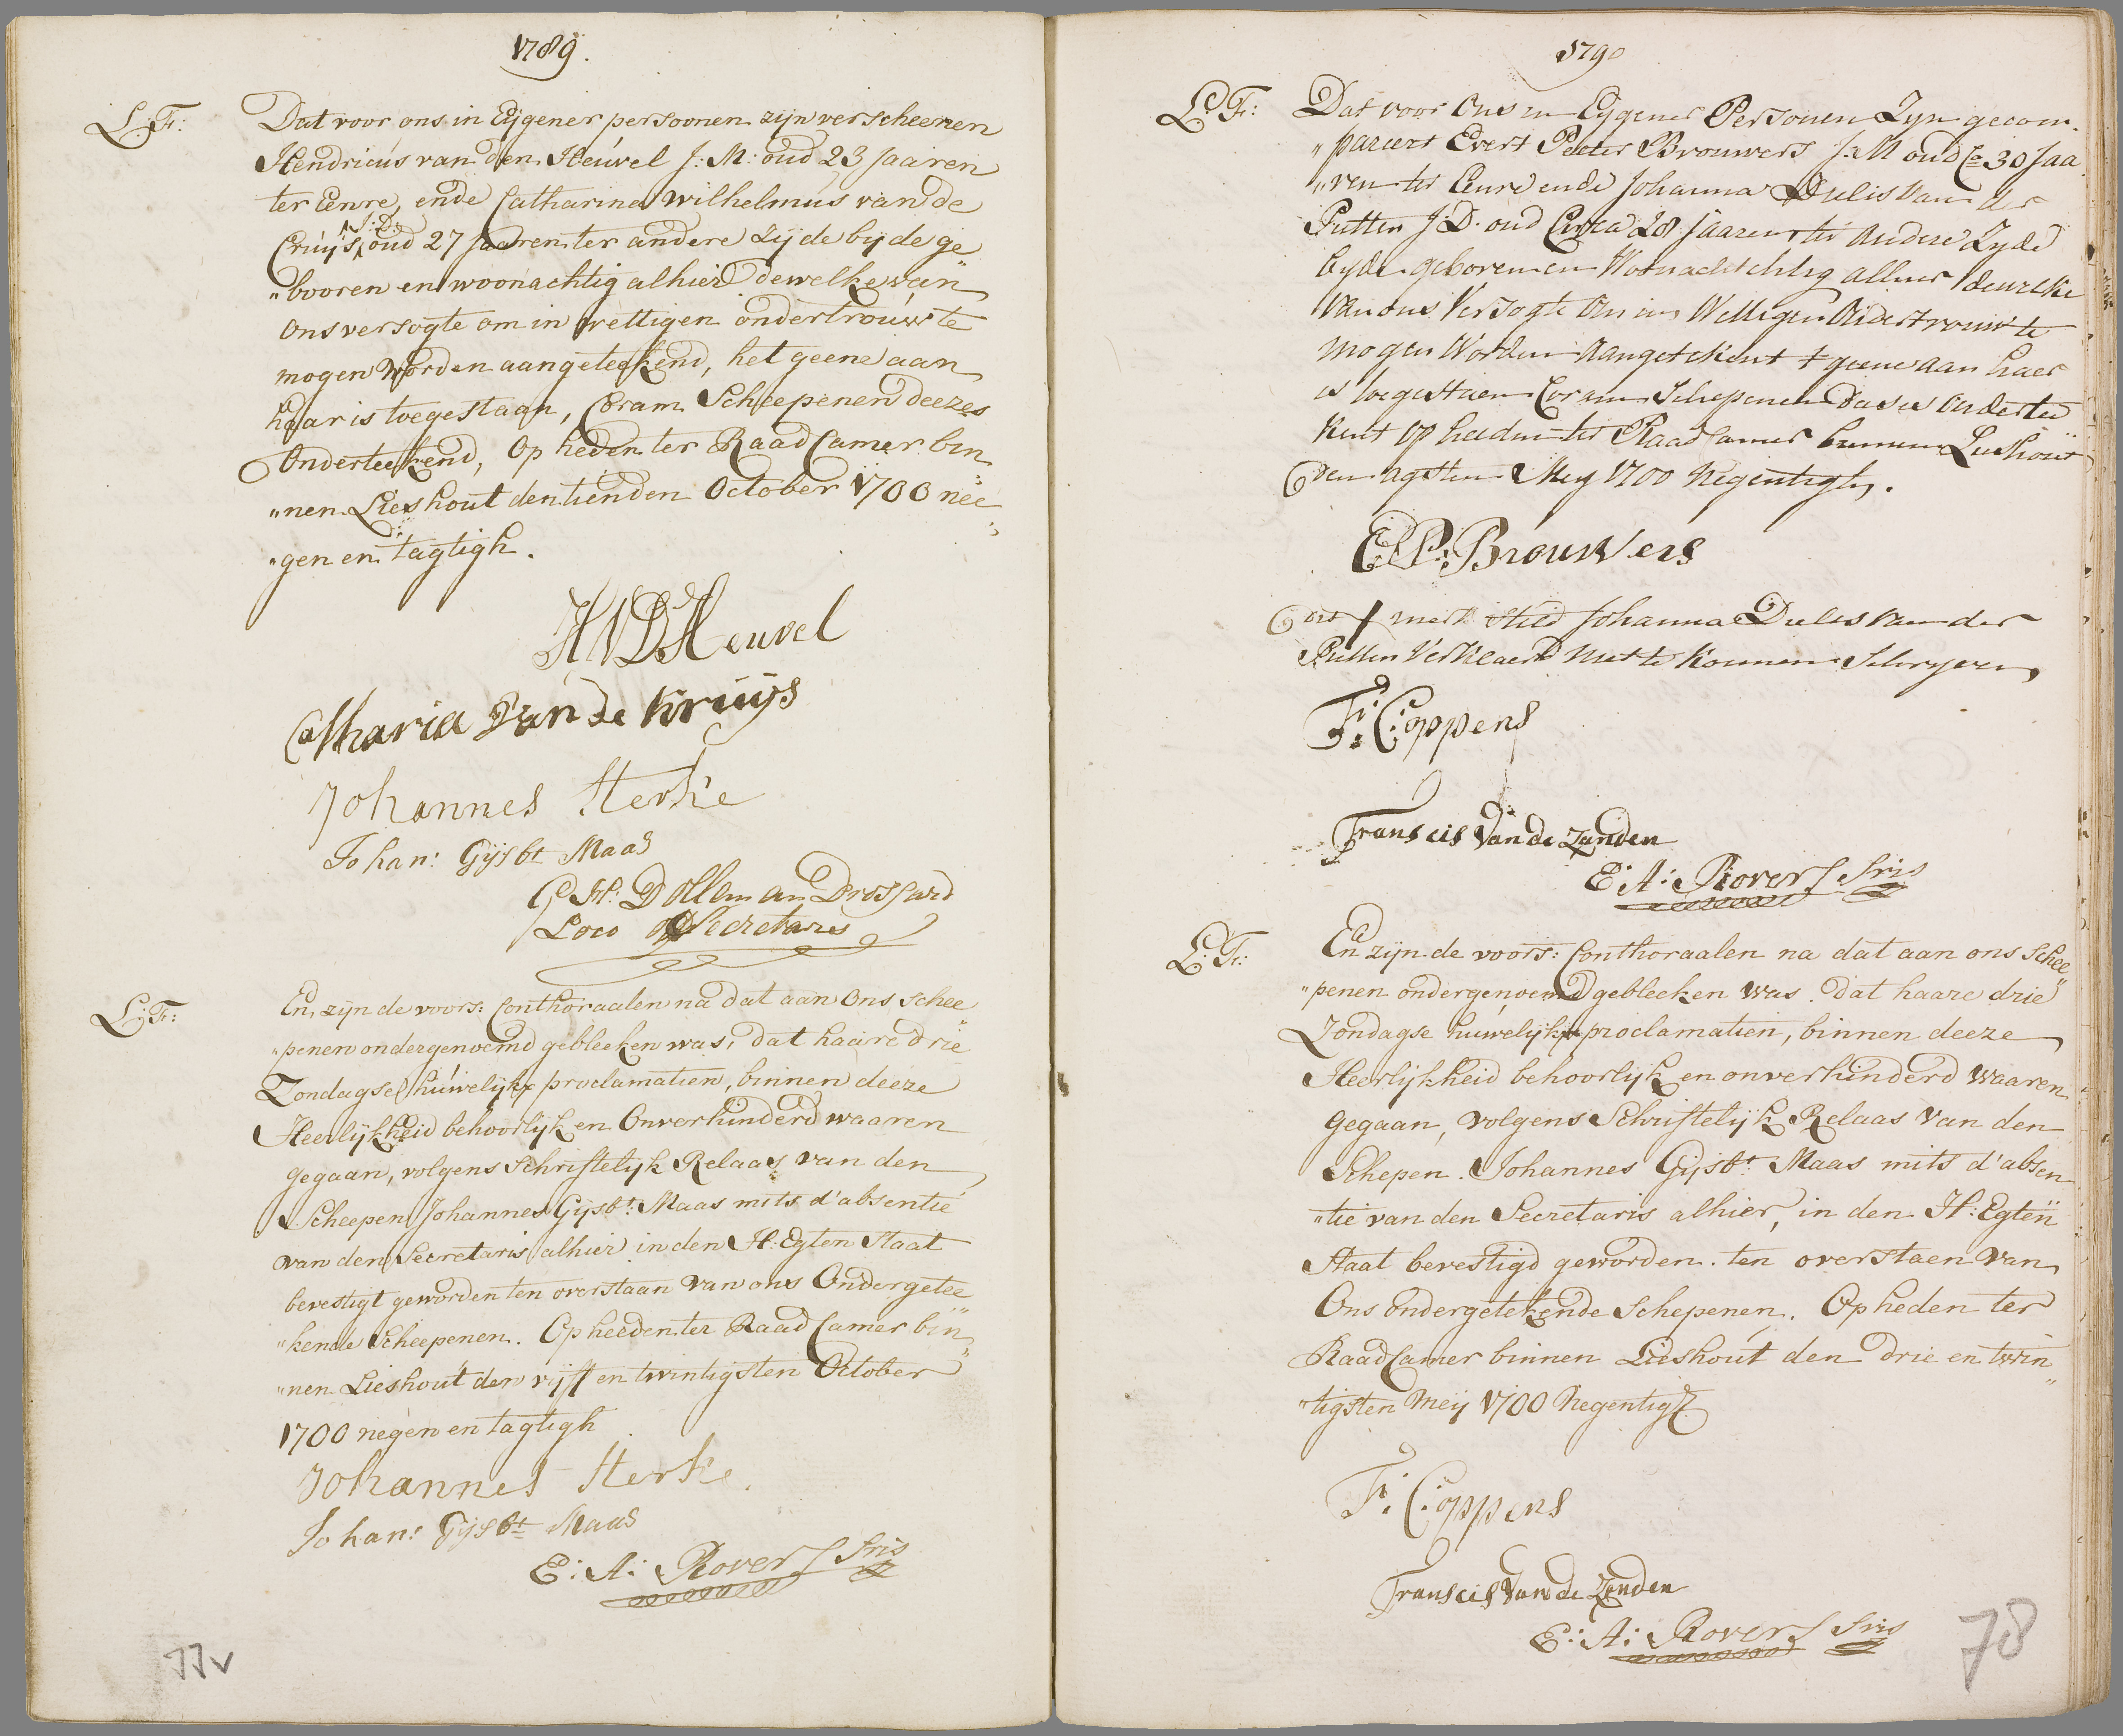 1789.
L: Fr:
Dat voor ons in Eijgener persoonen zijn verscheenen
Hendricus van den Heuvel J: M: oud 23 Jaaren
ter Eenre, ende Catharina Wilhelmus van de
J: D:
Cruijs, oud 27 Jaaren ter andere zijde bijde ge
"booren en woonachtig alhier dewelke van
ons versogte om in wettigen ondertrouw te
mogen worden aangeteekend, het geene aan
haar is toegestaan, Coram Scheepenen deezes
Onderteekend, Op heden ter Raad Camer bin
"nen Lieshout den tienden October 1700 nee
"gen en tagtigh.
H V D Heuvel
Catharia van de Kruijs
Johannes Sterke
Johan: Gijsbt Maas
G H: Dolleman Drossard
Loco Secretaris
L: Fr:
En zijn de voors: Conthoraalen na dat aan Ons Schee
"penen ondergenoemd gebleeken was, dat haare drie
Zondagse huwelijkx proclamatien, binnen deeze
Heerlijkheid behoorlijk en Onverhinderd waaren
gegaan, volgens Schriftelijk Relaas van den
Scheepen Johannes Gijsbt: Maas mits d'absentie
van den Secretaris alhier in den H: Egten Staat
bevestigt geworden ten overstaan van ons Ondergetee
"kende Scheepenen. Op heeden ter Raad Camer bin
"nen Lieshout den vijff en twintigsten October
1700 negen en tagtigh
Johannes Sterke
Johan: Gijsbt Maas
E: A: Rovers Sris
77v
1790
L: Fr:
Dat voor Ons in Eygener Persoonen Zyn gecom
"pareert Evert Peeter Brouwers J: M oud Ca 30 Jaa
"ren ter Eenre ende Johanna Dielis van der
Putten J: D. oud Circa 28 Jaaren ter andere Zyde
byde geboren en Woonachtig alhier dewelke
van ons Versogte om in Wettigen Ondertrouw te
mogen Worden Aangetekent t geene aan haer
is toegestaen Coram Schepenen deses ondertee
kent op heeden ter Raad Camer binnen Lieshout
den agsten Mey 1700 Negentigh.
E P: Brouwers
dit merk stelt Johanna Dielis van der
Putten Verklaerd niet te konnen Schryven
F: Coppens
Franscis van de Zanden
E: A: Rovers Sris
L: Fr:
En zijn de voors: Conthoraalen na dat aan ons Schee
"penen ondergenoemd gebleeken was. dat haare drie
Zondagse huwelijkx proclamatien, binnen deeze
Heerlijkheid behoorlijk en onverhinderd waaren
gegaan, volgens Schriftelijk Relaas van den
Schepen Johannes Gijsbt: Maas mits d'absen
"tie van den Secretaris alhier, in den H: Egten
Staat bevestigd geworden. ten overstaen van
Ons ondergetekende Schepenen. Op heden ter
Raad Camer binnen Lieshout den drie en twin
"tigsten Meij 1700 Negentig
F: Coppens
Franscis van de Zanden
E: A: Rovers Sris
78